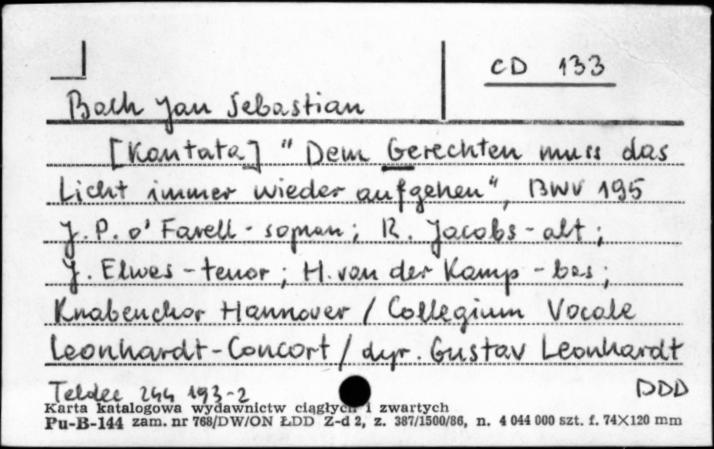 CD 133
Bach Jan Sebastian
[Kantata] " Dem Gerechten muss das
Licht immer wieder aufgehen", BWV 195
J. P. o' Farell - sopran; R. Jacobs - alt;
J. Elwes - tenor; H. van der Kamp - bas;
Knabenchor Hannover / Collegium Vocale
Leonhardt-Concort / dyr. Gustav Leonhardt
Teldec 244 193-2 DDD
Karta katalogowa wydawnictw ciągłych i zwartych
Pu-B-144 zam. nr 768/DW/ON ŁDD Z-d 2, z. 387/1500/86, n. 4 044 000 szt. f. 74×120 mm